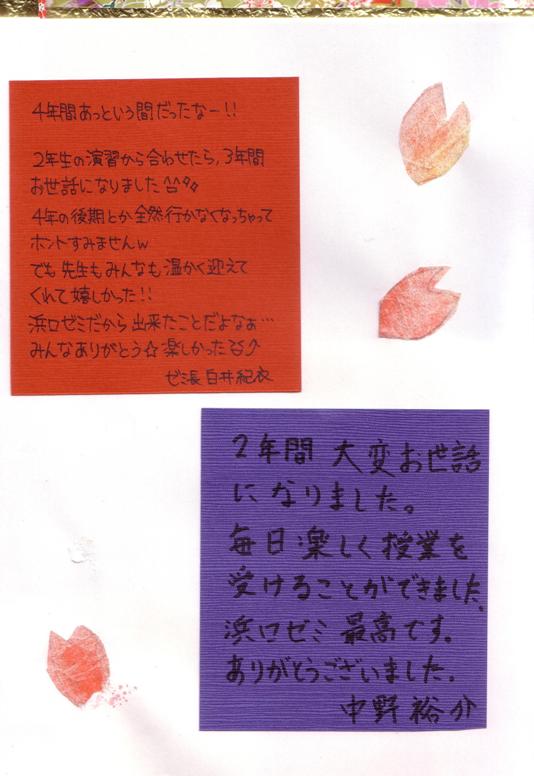 4年間あっという間だったなー!!
2年生の演習から合わせたら,3年間
お世話になりました^^
4年の後期とか全然行かなくなっちゃって
ホントすみませんw
でも先生もみんなも温かく迎えて
くれて嬉しかった!!
浜口ゼミだから出来たことだよなぁ…
みんなありがとう☆楽しかった
ゼミ長 白井紀衣
2年間 大変お世話
になりました。
毎日楽しく授業を
受けることができました。
浜口ゼミ最高です。
ありがとうございました。
中野裕介